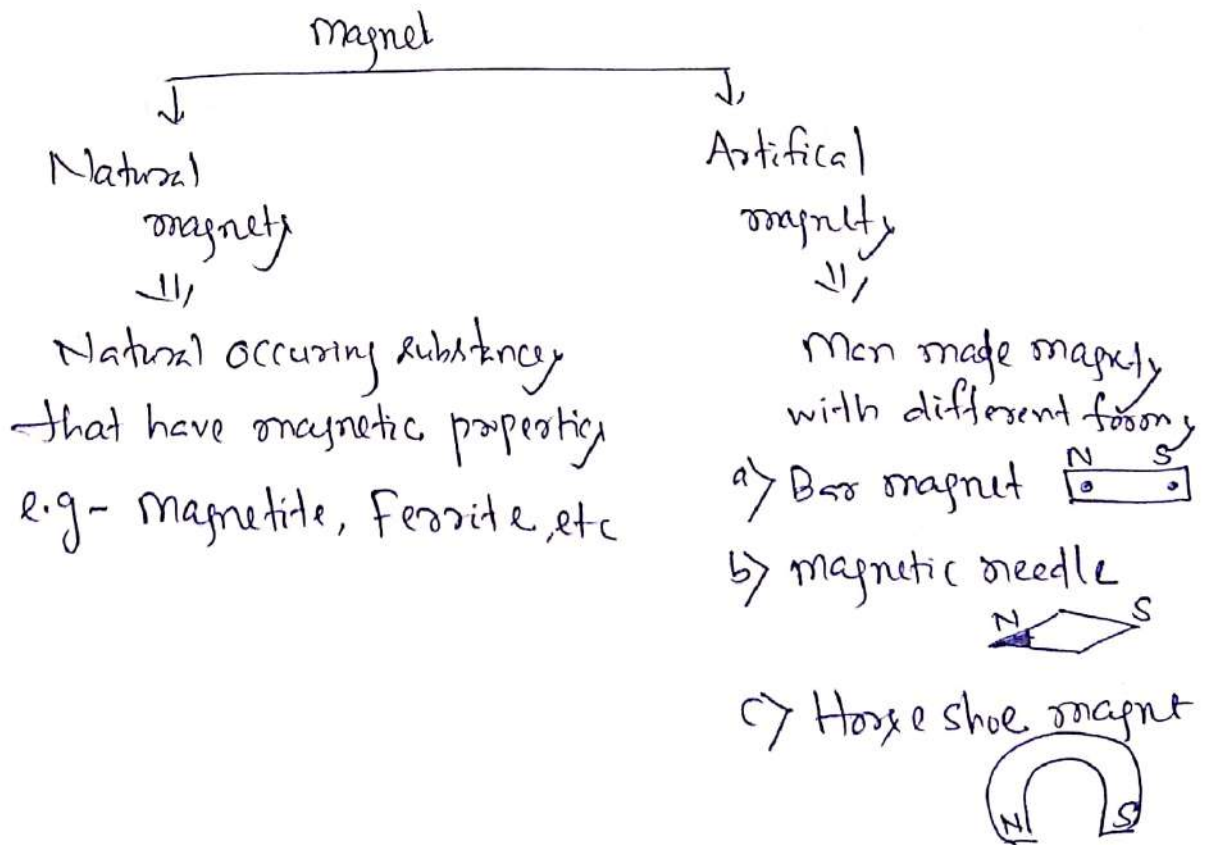 Magnet
Natural
magnets
Natural occuring substances
that have magnetic properties
e.g - Magnetite, Ferrite, etc
Artifical
magnets
Man made magnets
with different forms
a) Bar magnet
N S
b) magnetic needle
N S
c) Horse shoe magnt
N S